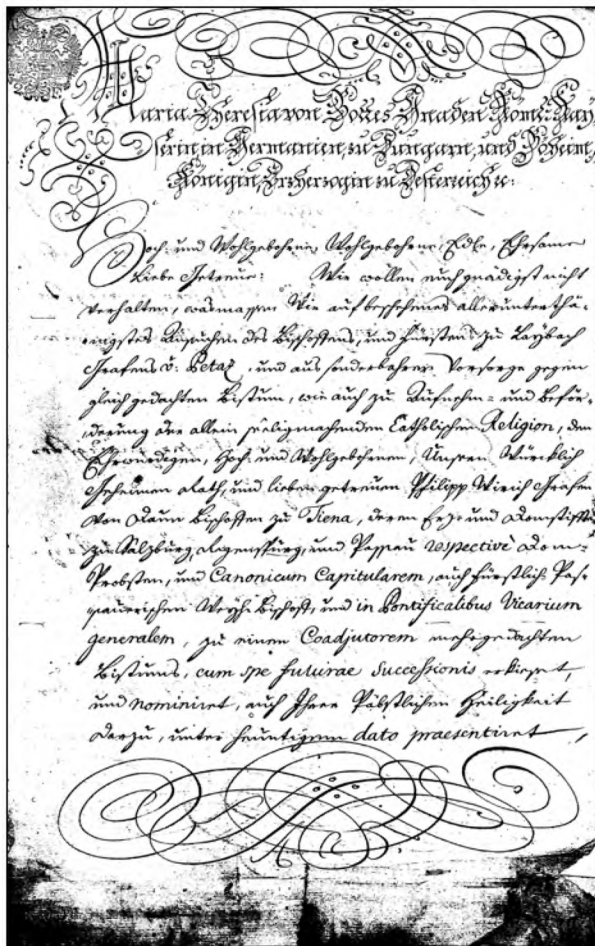 Maria Theresia von Gottes Gnaden Röm: Kay-
serin, in Germanien, zu Hungarn, und Böheimb,
Königin, Erzherzogin zu Österreich ec:
Hoch- und Wohlgebohrne, Wohlgebohrne, Edle, Ehrsame
Liebe Getreue: Wir wollen euch gnädigst nicht
verhalten, wasmassen Wir auf beschehenes allerunterthä-
nigstes Ansuchen des Bischoffens, und Fürstens zu Laybach
Grafens v: Petaz, und aus sonderbahrer Vorsorge gegen
gleich gedachten Bistum, wie auch zu Aufnehm- und Beför-
derung der allein seeligmachenden Catholischen Religion, den
Ehrwürdigen, Hoch- und Wohlgebohrnen, Unseren Würcklich
Geheimen Rath, und lieben getreuen Philipp Wirich Grafen
von Daun Bischoffen zu Tiena, deren Erz- und Domstiffter
zu Salzburg, Regenspurg, und Passau respectivè Dom-
Probsten, und Canonicum Capitularem, auch Fürstlich Pas-
sauerischen Weyhe Bischoff, und in Pontificalibus Vicarium
generalem, zu einen Coadjutorem mehrgedachten
Bistums, cum spe futurae successionis erkieset,
und nominiret, auch Ihrer Päbstlichen Heiligkeit
darzu, unter heuntigem dato praesentiret,